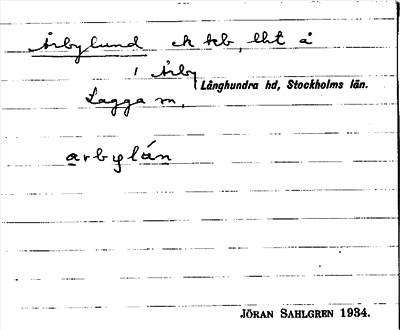 Årbylund ek kb, lht å
1 Årby
Långhundra hd, Stockholms län.
Lagga sn.
arbylán
JÖRAN SAHLGREN 1934.